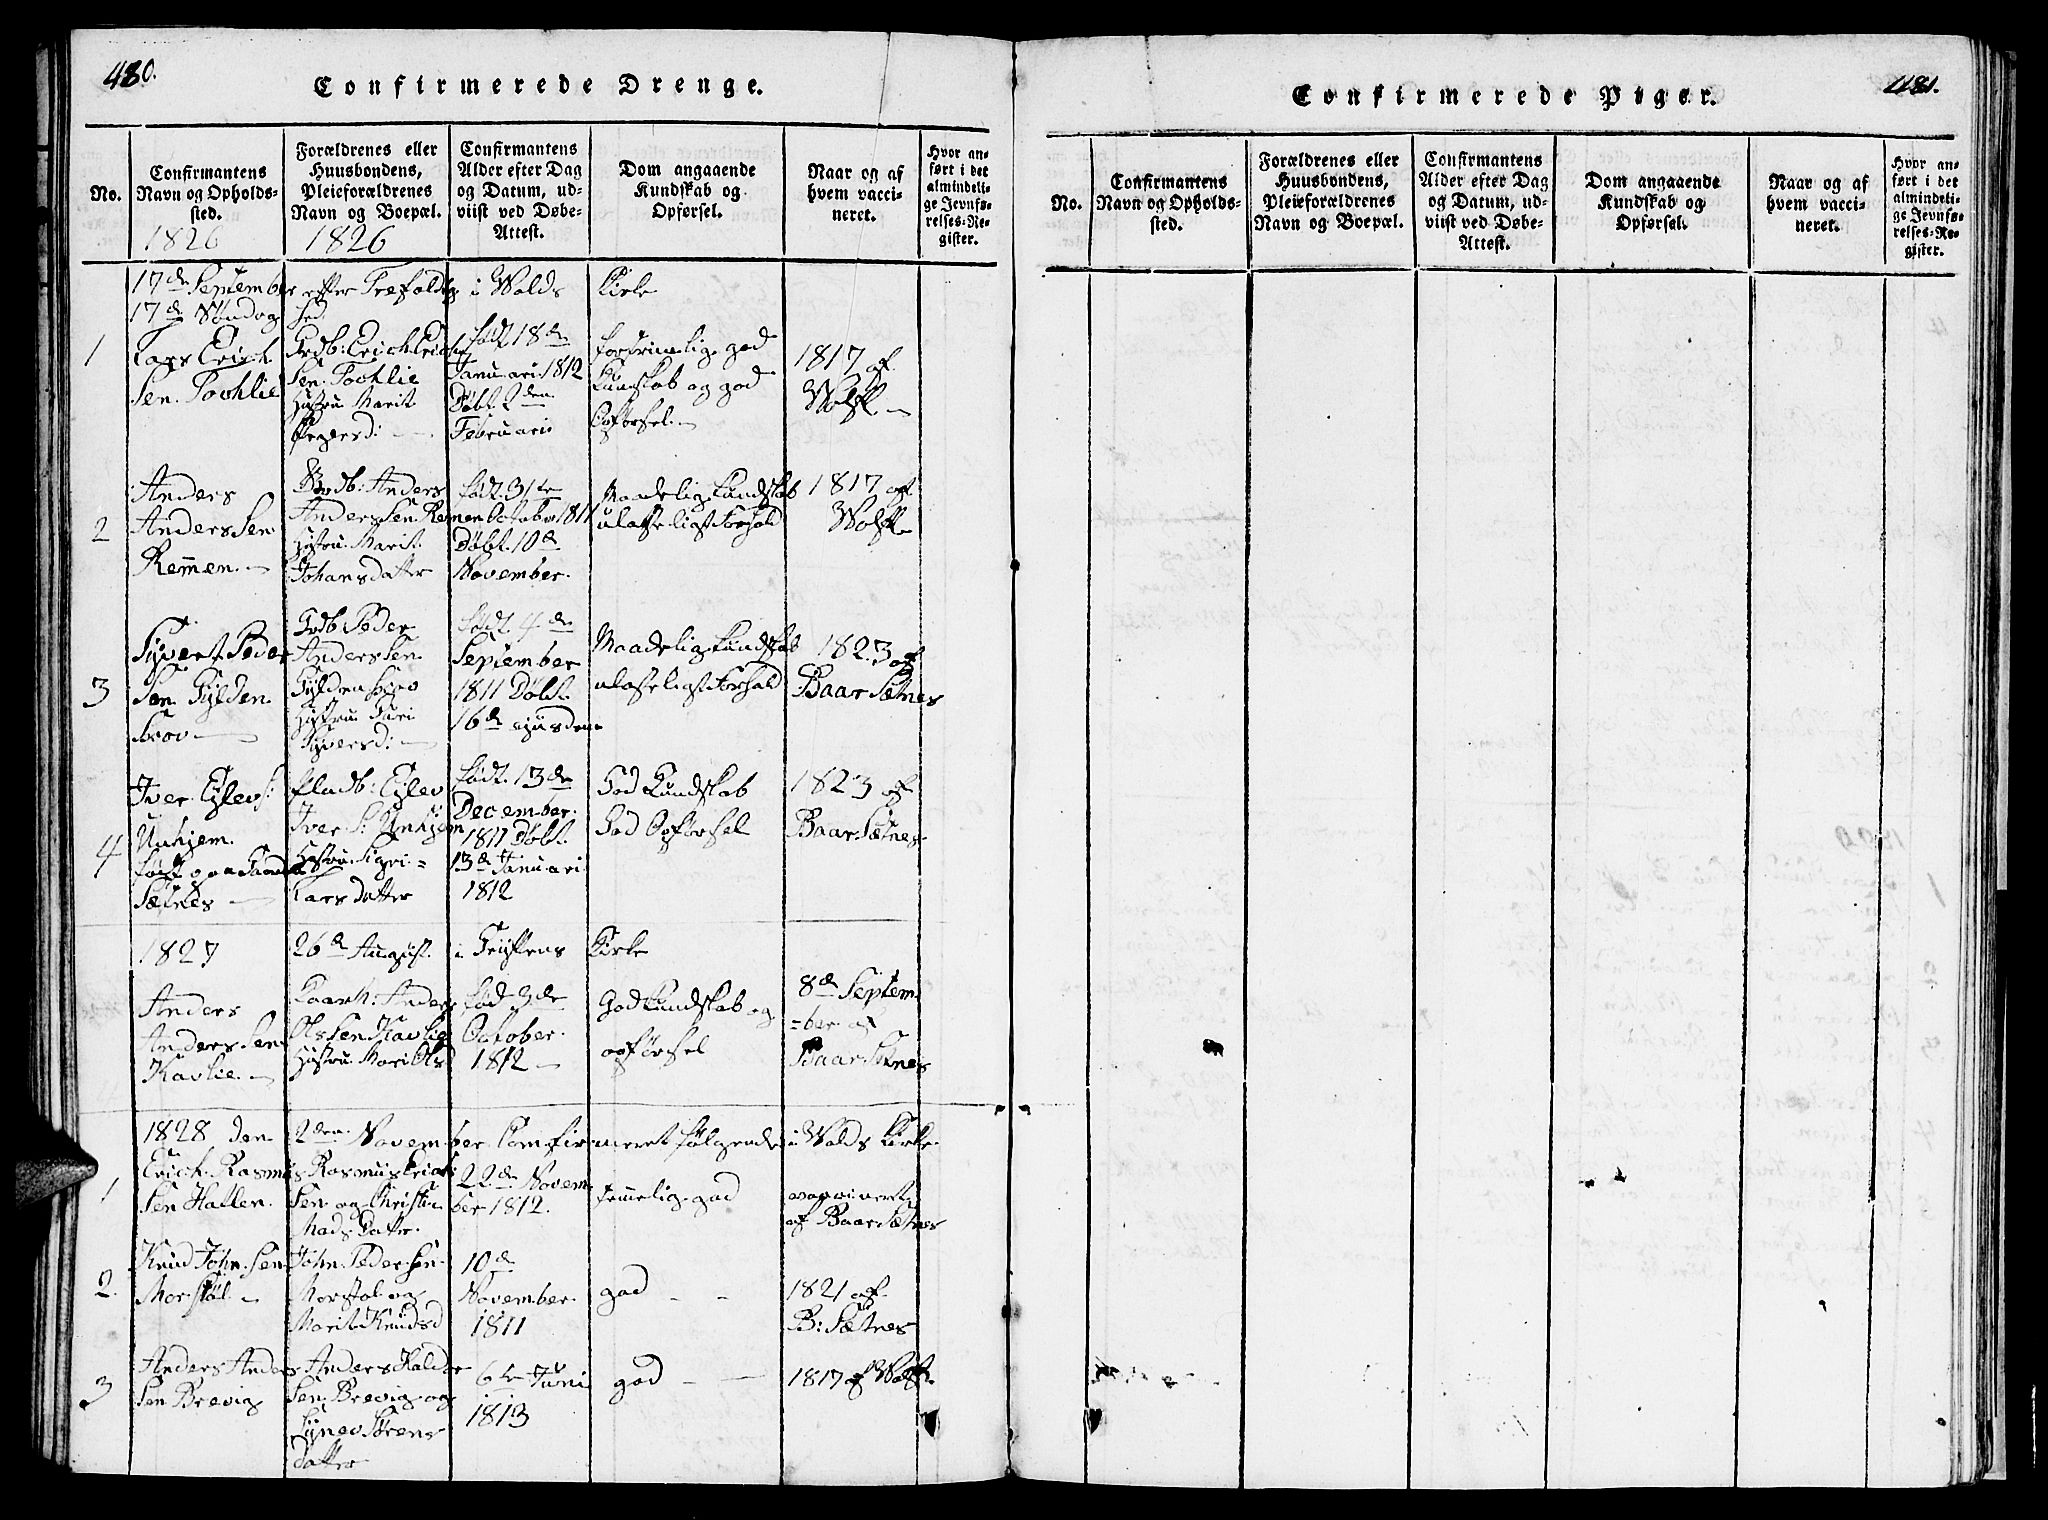 480.
Confirmerede Drenge.
No.
Confirmantens Navn og Opholds-sted.
Forældrenes eller Huusbondens, Pleieforældrenes Navn og Boepæl.
Confirmantens Alder efter Dag og Datum, ud-viist ved Døbe-Attest.
Dom angaaende Kundskab og Opførsel.
Naar og af hvem vacci-neret.
Hvor an-ført i det almindeli-ge Jevnfø-relses-Re-gister.
1826 1826
17de September efter Trefoldig i Wolds Kirke
17de Søndag hed
1
Lars Erich
Sen
Grdb: Erich
Sen
Hustru Marit
født 18de
Januari 1812
Døbt 2den
Februarii
god
Kundskab og god
Opførsel.
1817 af
Wolff
2
Anders
Anders Sen
Remmen.
Anders
Anders Sen Remmen
Hustru Marit
Johansdatter
født 31te
October 1811
Døbt 10de
November.
Maadelig Kundskab
ulasteligt Forhold
1817 af
Wolff
3
Syvert Peder
Sen Gylden
Grdb Peder
Anders Sen
Hustru Guri
Syversd:
født 4de
September
1811 Døbt
16de ejusdem
Maadelig Kundskab
ulasteligt Forhold
1823 af
Baar Sætnes
4
Iver Eylevs:
Unhjem.
født paa
Sætnes
Pladb: Eylev
Iver S: Unhjem
Hustru Sigri
Lars datter
født 13de
December
1811 Døbt
13de Januari
1812
God Kundskab
God Opførsel
1823 af
Baar Sætnes
1827 26de August i Grytens Kirke
Anders
Anders Sen
Kavlie
Anders
Ols Sen Kavlie
Hustru Mari Olsd
fød 3de
October
1812
God Kundskab og
opførsel
8de Septem
=ber af
Baar Sætnes
1828 den 2den November Comfirmeret følgende i Wolds Kirke
1
Erich Rasmus
Sen Hatlen.
Rasmus Erich
Sen og Christi
Mads Datter
22de Novem
ber 1812.
temmelig god
vaccineret
af Baar Sætnes
2.
Knud John Sen
Morstøl
John Peder Sen
Morstøl og
Marit Knudsd
10de
November
1811
god
1821 af
B: Sætnes
3
Anders Anders
Sen Brevig
Anders Haldor
Sen Brevig og
Synev Sørens
datter
6te Juni
1813
god
1817 af Wolff
481.
Confirmerede Piger.
No.
Confirmantens Navn og Opholds-sted.
Forældrenes eller Huusbondens, Pleieforældrenes Navn og Boepæl.
Confirmantens Alder efter Dag og Datum, ud-viist ved Døbe-Attest.
Dom angaaende Kundskab og Opførsel.
Naar og af hvem vacci-neret.
Hvor an-ført i det almindeli-ge Jevnfø-relses-Re-gister.